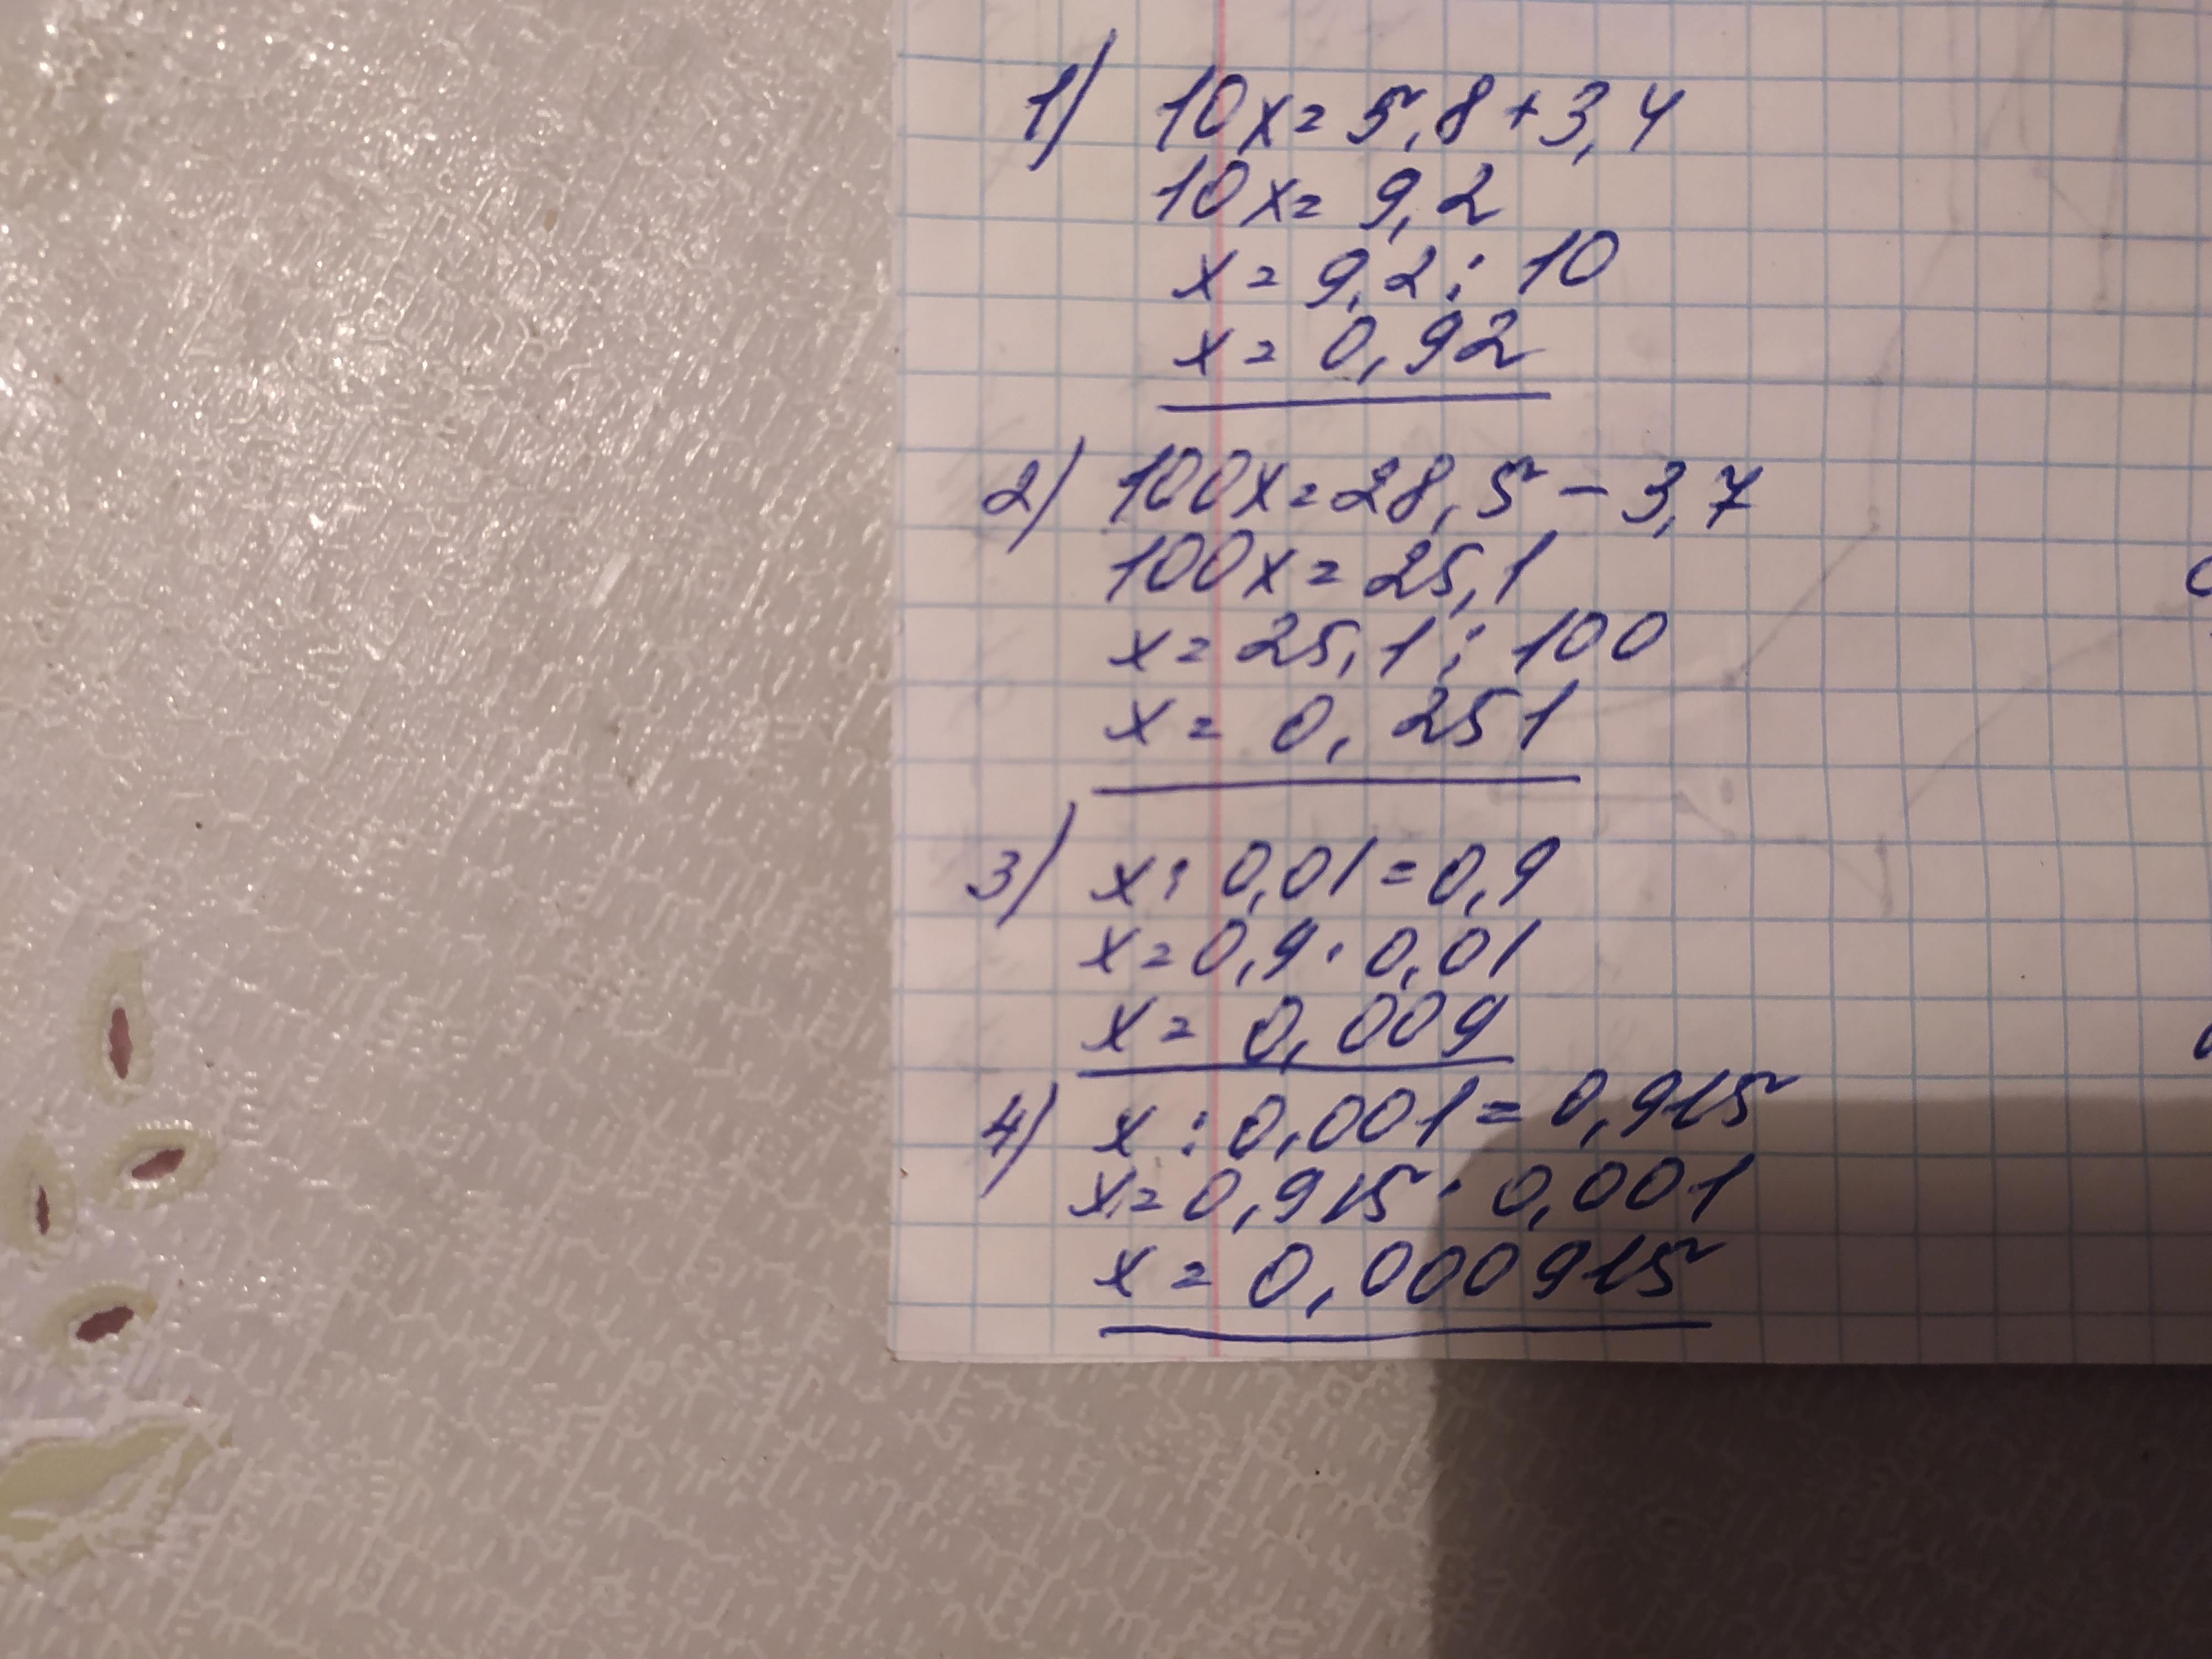 1) 10x = 5,8 + 3,4
10x = 9,2
x = 9,2 : 10
x = 0,92
2) 100x = 28,5 - 3,7
100x = 25,1
x = 25,1 : 100
x = 0,251
3) x : 0,01 = 0,9
x = 0,9 · 0,01
x = 0,009
4) x : 0,001 = 0,915
x = 0,915 · 0,001
x = 0,000915